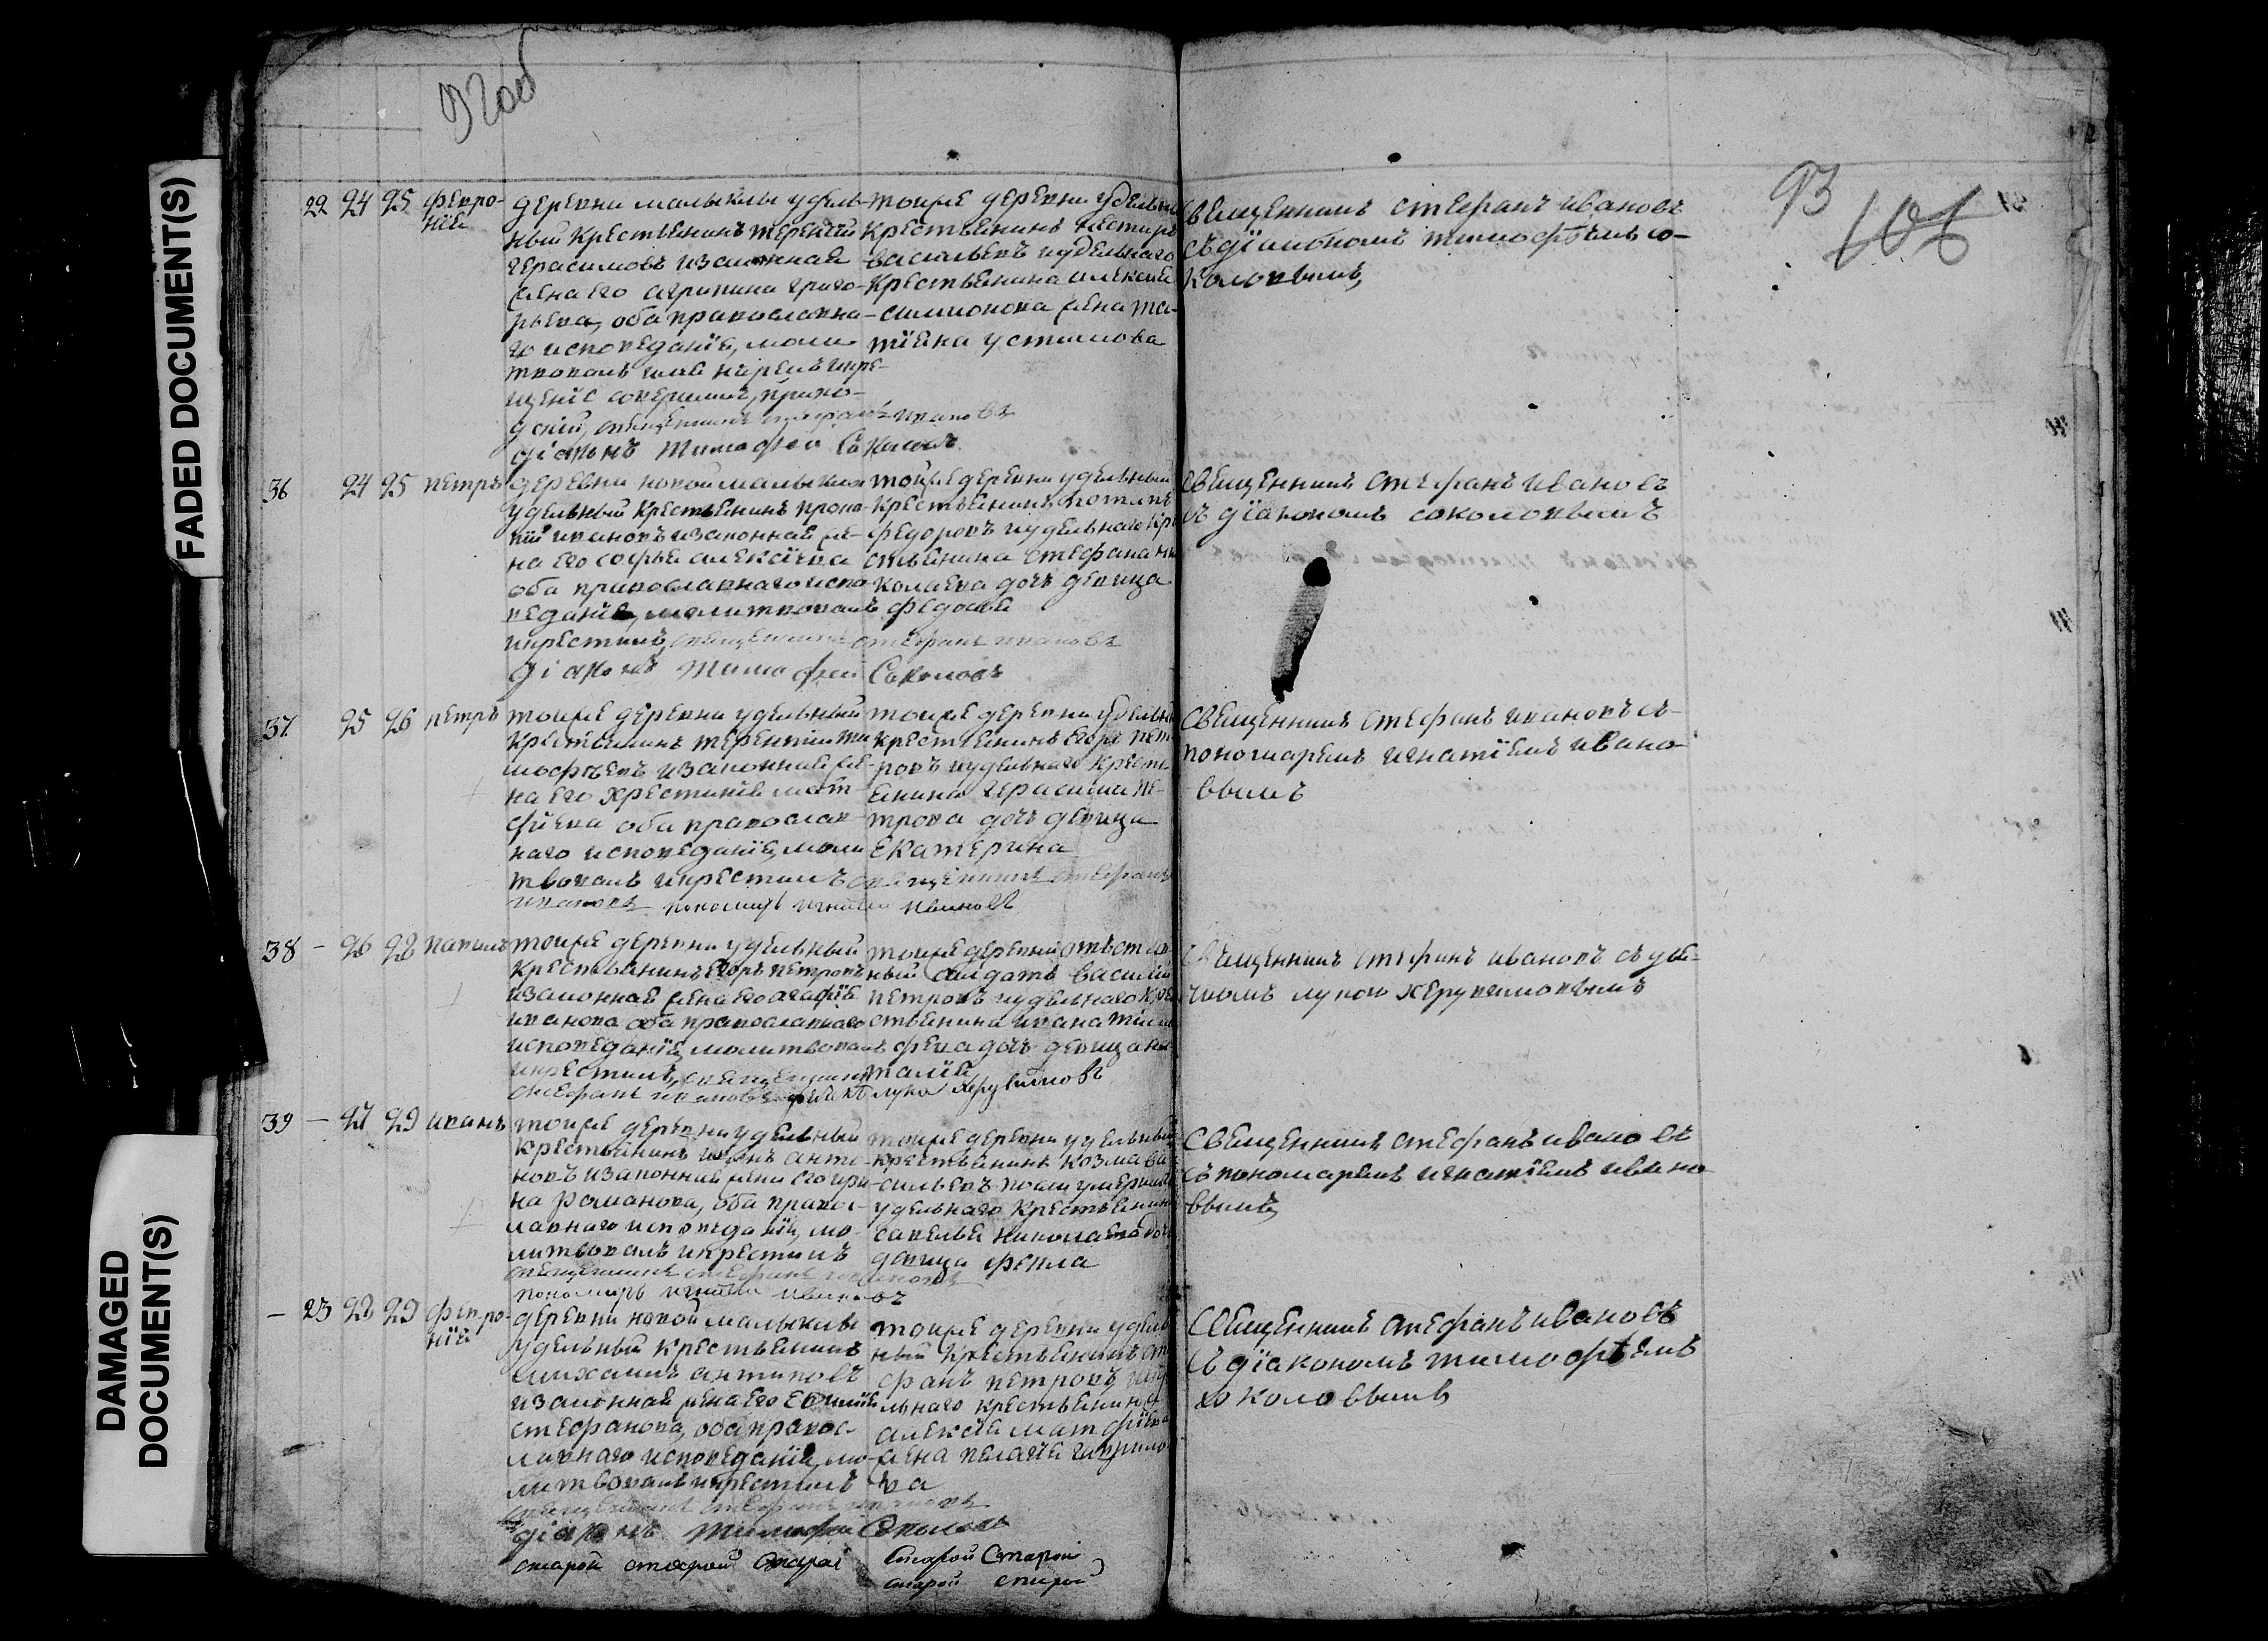 92 об
93
106
FADED DOCUMENT(S)
DAMAGED
DOCUMENT(S)
22 24 25 февро-
нїе
деревни малыклы удель-
ный крестьенинъ терентей
герасимовъ изаконнае
жена его агрипина григо-
рьева, оба православна-
го исповеданїе, моли-
твовалъ имя нарелъ икре-
щенїе совершилъ, прихо-
дскій, священникъ стефанъ ивановъ
дїаконъ тимофей Соколовъ
тоийже деревни удельный
крестьенинъ
васильевъ иудельнаго
крестьенина алексее
симионова жена та-
тїена устимова
священникъ стефанъ ивановъ
съ дїакономъ тимофѣемъ со-
коловымъ
36 24 25 петръ
деревни новой малыклы
удельный крестьенинъ проко-
пїй ивановъ изаконнае же-
на его софье алексїева
оба православнаго испо-
веданїе, молитвовалъ
икрестилъ, священникъ стефанъ ивановъ
дїаконъ тимофей Соколовъ
тоийже деревни удельный
крестьенинъ потапъ
федоровъ иудельнаго кре
стьенина стефана ни
колаева дочь девица
федосье
священникъ стефанъ ивановъ
съ дїакономъ соколовымъ
37 25 26 петръ
тоийже деревни удельный
крестьенинъ терентїй ти
мофѣевъ изаконнае же-
на его хрестинїе мат-
фїева оба православ-
наго исповеданїе, моли
твовалъ икрестилъ священникъ стефанъ
ивановъ пономарь игнатий ивановъ
тоийже деревни удельный
крестьенинъ егоръ пет
ровъ иудельнаго кресть
енина герасима пе-
трова дочь девица
екатерина
священникъ стефанъ ивановъ съ
пономаремъ игнатїемъ ивано-
вымъ
38 - 26 28 павилъ
тоийже деревни удельный
крестьенинъ егоръ петровъ
изаконнае жена его агафїе
иванова оба православнаго
исповеданїе, молитвовалъ
икрестилъ, священникъ
стефанъ ивановъ дьячекъ лука херувимовъ
тоийже деревни отъстав
ный салдатъ василий
петровъ иудельнаго кре
стьенина ивана тимо
феева дочь девица на
талїе
священникъ стефанъ ивановъ съ дье-
чкомъ лукою херувимовымъ
39 - 27 29 иванъ
тоийже деревни удельный
крестьенинъ иванъ анти-
повъ изаконнае жена его ири-
на романова, оба правос-
лавнаго исповеданїе, мо-
литвовалъ икрестилъ
священникъ стефанъ ивановъ
пономарь игнатий ивановъ
тоийже деревни удельный
крестьенинъ козма ва
сильевъ
удельнаго крестьенина
савелье николаева дочь
девица фекла
священникъ стефанъ ивановъ
съ пономаремъ игнатїемъ ивано
вымъ
- 23 28 29 февро-
нїе
деревни новой малыклы
удельный крестьенинъ
михаилъ антиповъ
изаконнае жена его
стефанова, оба правос-
лавнаго исповеданїе, мо-
литвовалъ икрестилъ
священникъ стефанъ ивановъ
дїаконъ тимофей Соколовъ
тоийже деревни удель
ный крестьенинъ сте
фанъ петровъ иуде
льнаго крестьенина
алексїе матфїева
жена пелагїе гаврило
ва
священникъ стефанъ ивановъ
съ дїакономъ тимофѣемъ
соколоввымъ
старой старой старой
старой старой
старой старой